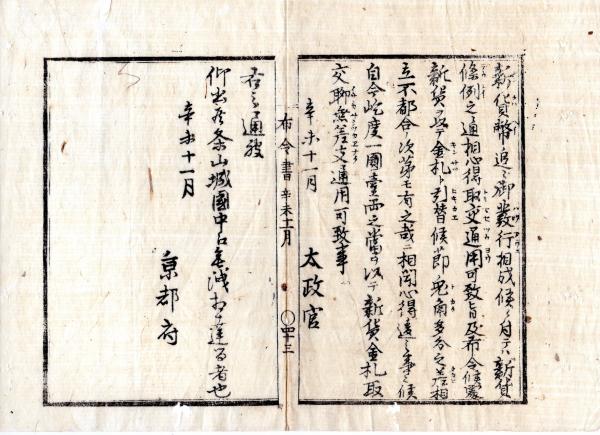 新貨幣追々御發行相成候ニ付テハ新貨
條例之通相心得取交通用可致旨及布令候處
新貨ヲ以テ金札ト引替候節ハ兎角多分之差相
立不都合ノ次第モ有之哉ニ相聞心得違之事ニ候
自今屹度一圓壹両之當ヲ以テ新貨金札取
交聊無差支通用可致事
辛未十一月 太政官
布令書 辛未十一月 四十三
右之通被
仰出候条山城國中江無洩相達る者也
辛未十一月
京都府